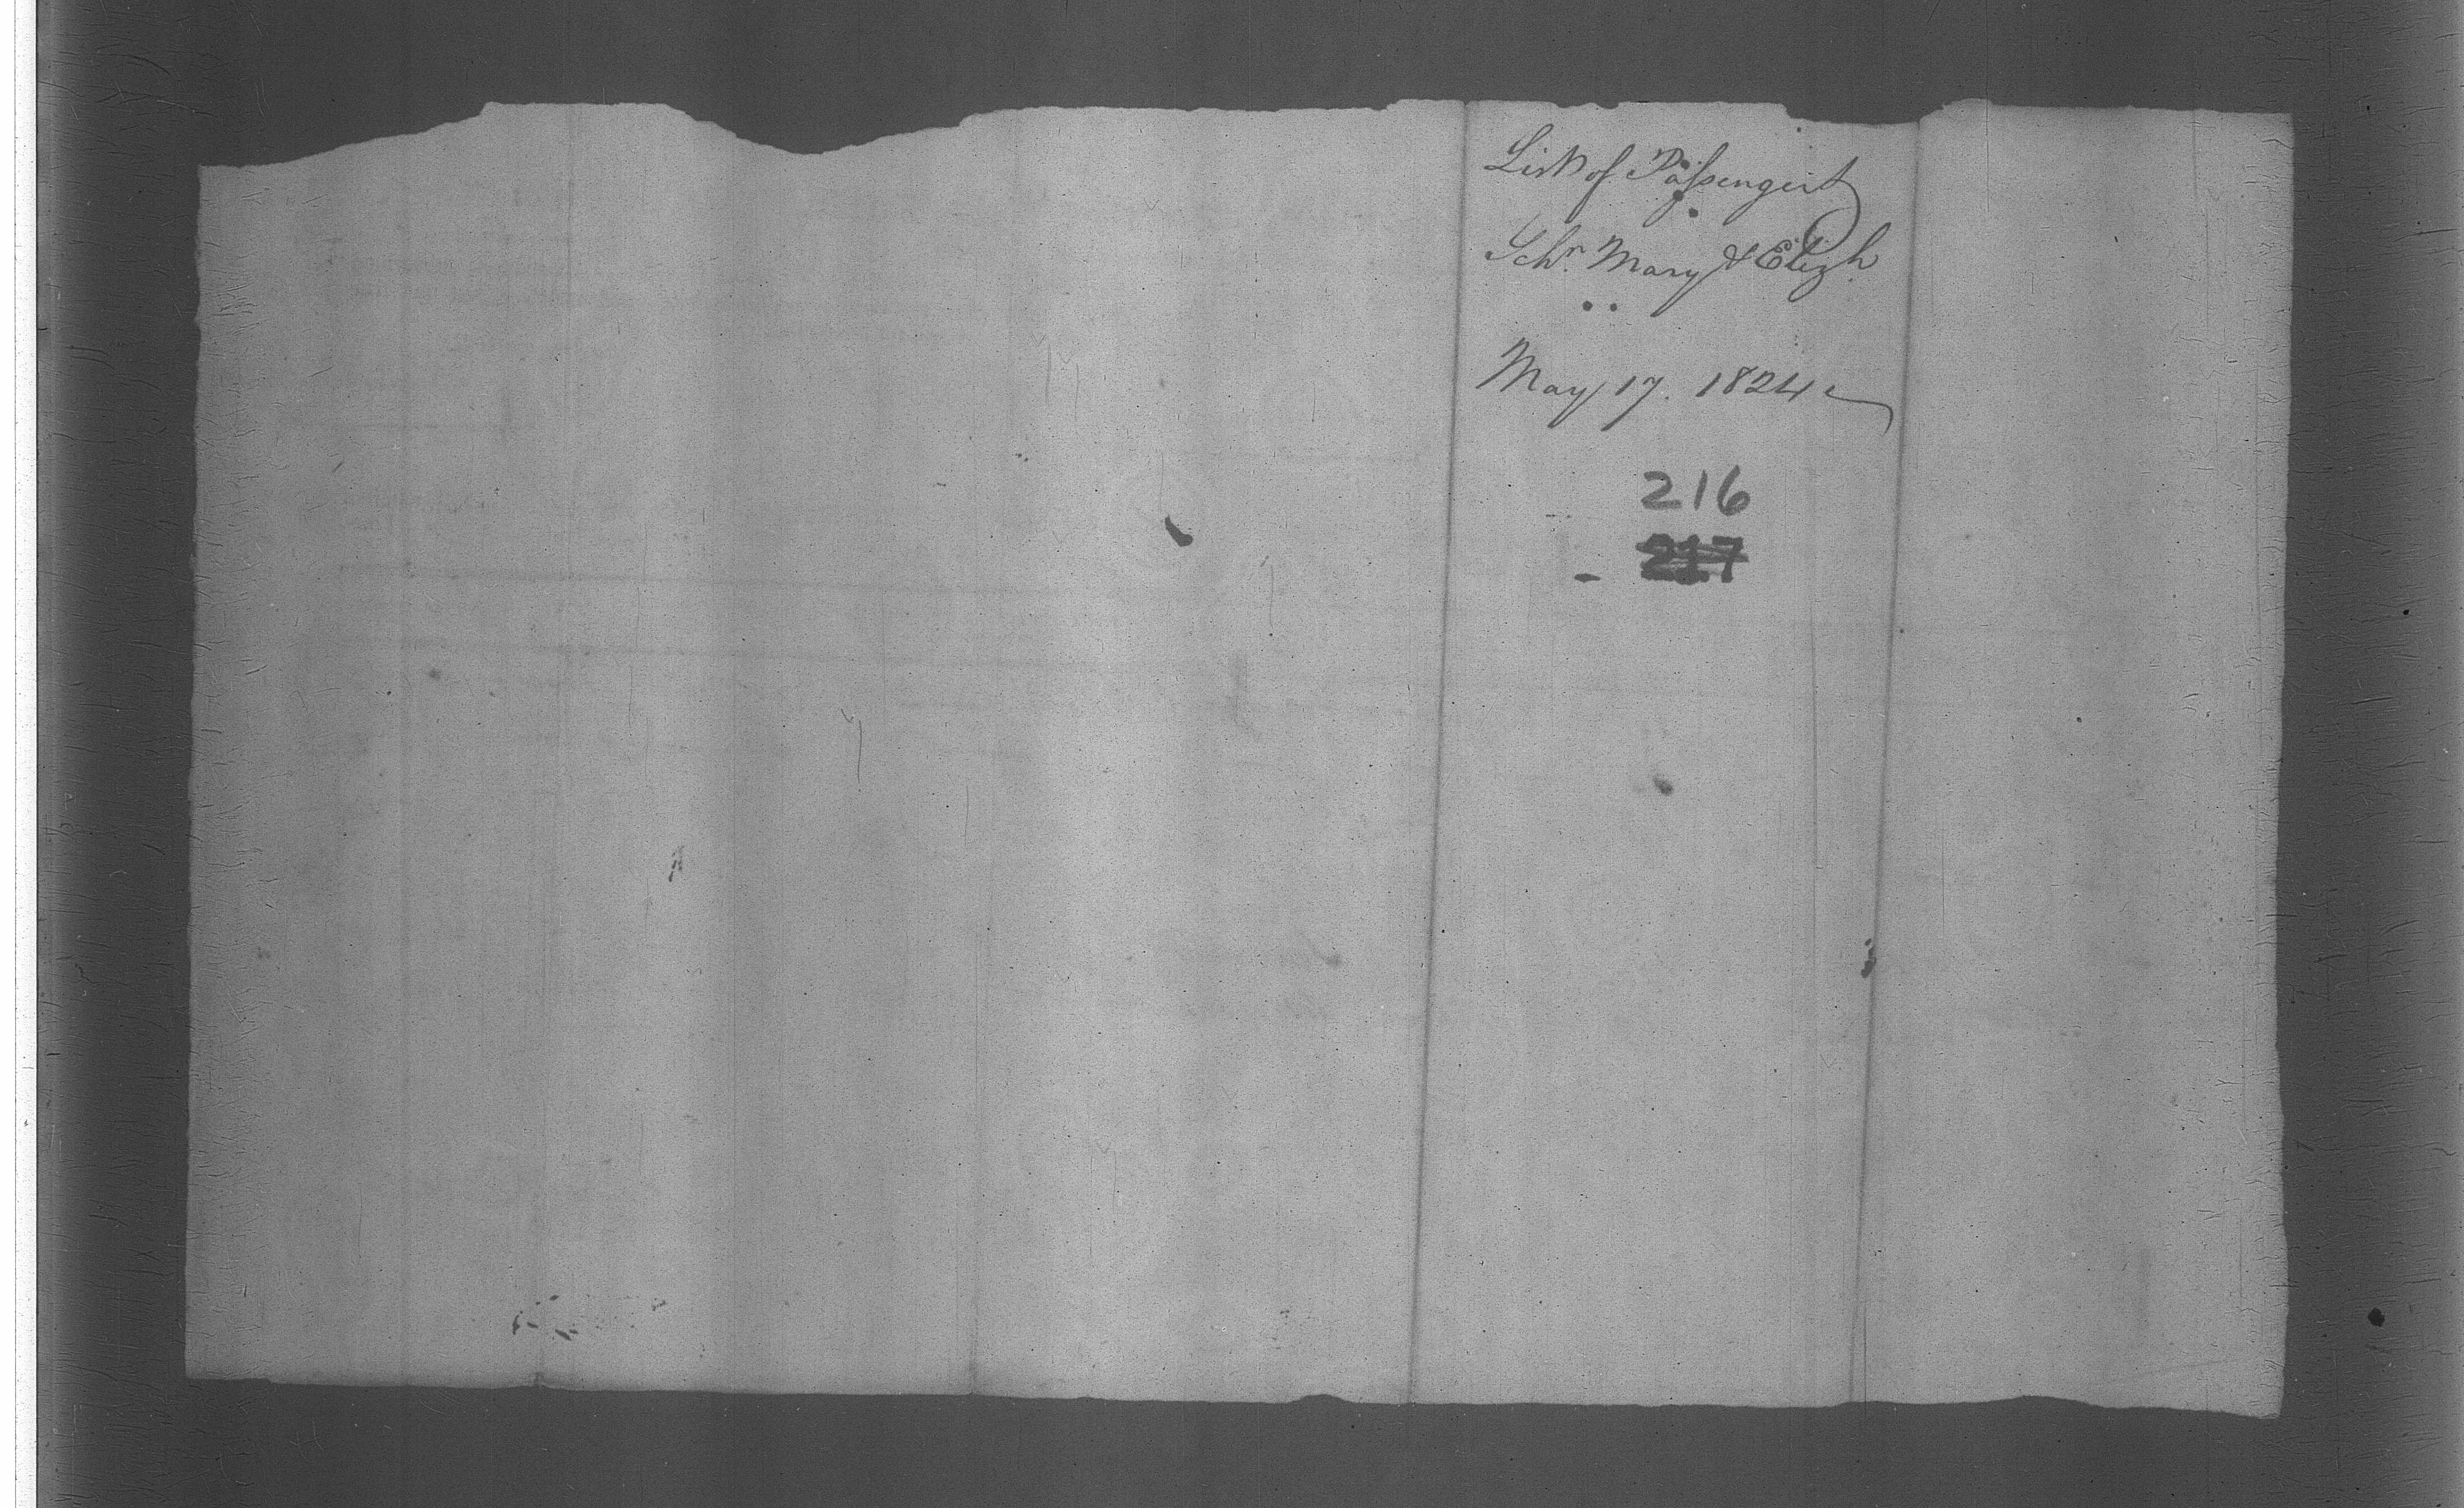 List of Passengers
Schr. Mary & Elizh
May 17. 1824
216
217